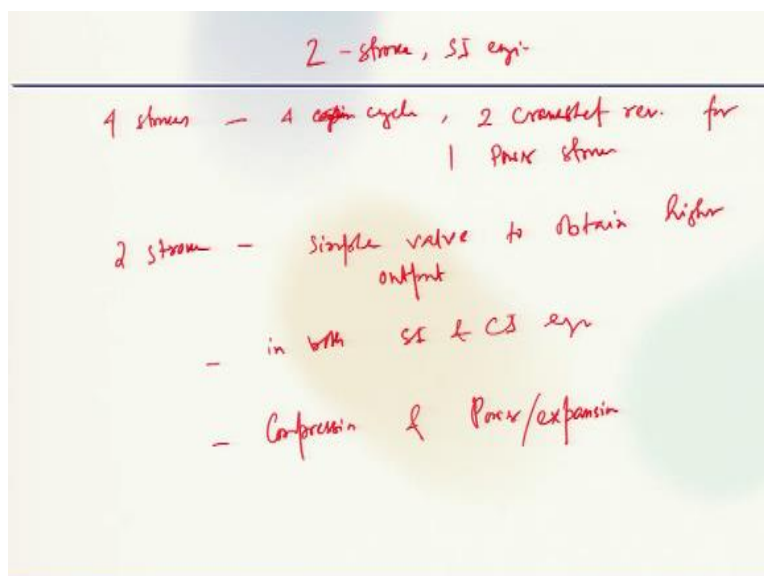 2 - stroke, SI engi-
4 strokes - 4 cycle, 2 crankshaft rev. for
1 Power stroke
2 stroke - simple valve to obtain higher
output
- in both SI & CI eng
- Compression & Power/expansion